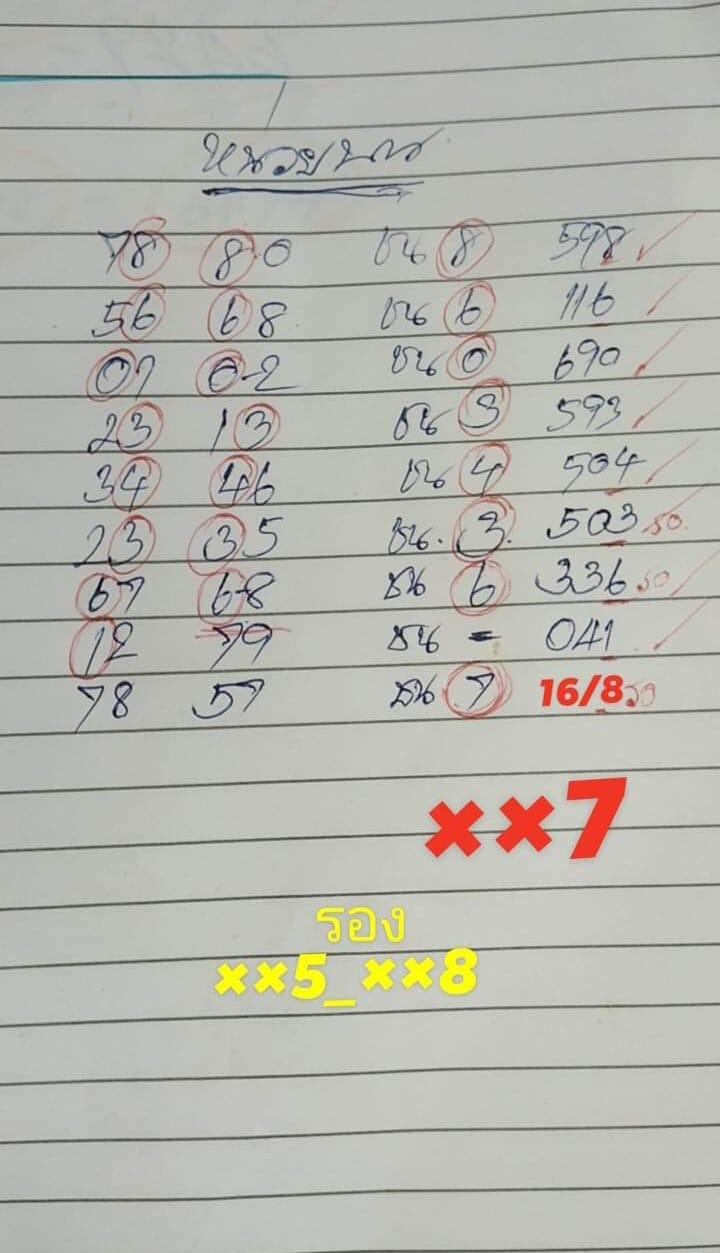 หน่วยบน
78 80 ชน 8 598
56 68 ชน 6 116
01 02 ชน 0 690
23 13 ชน 3 593
34 46 ชน 4 504
23 35 ชน. 3. 503 รอ.
67 68 ชน 6 336 รอ
12 79 ชน = 041
78 57 ชน 7 16/8 รอ
××7
รอง
××5_××8